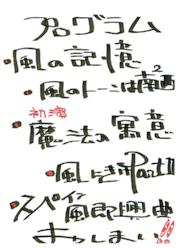 プログラム
・風の記憶
・風のトーンは南西2
初演
・魔法の寓意
風とき PartII
・スペイン
風即興曲
おしまい